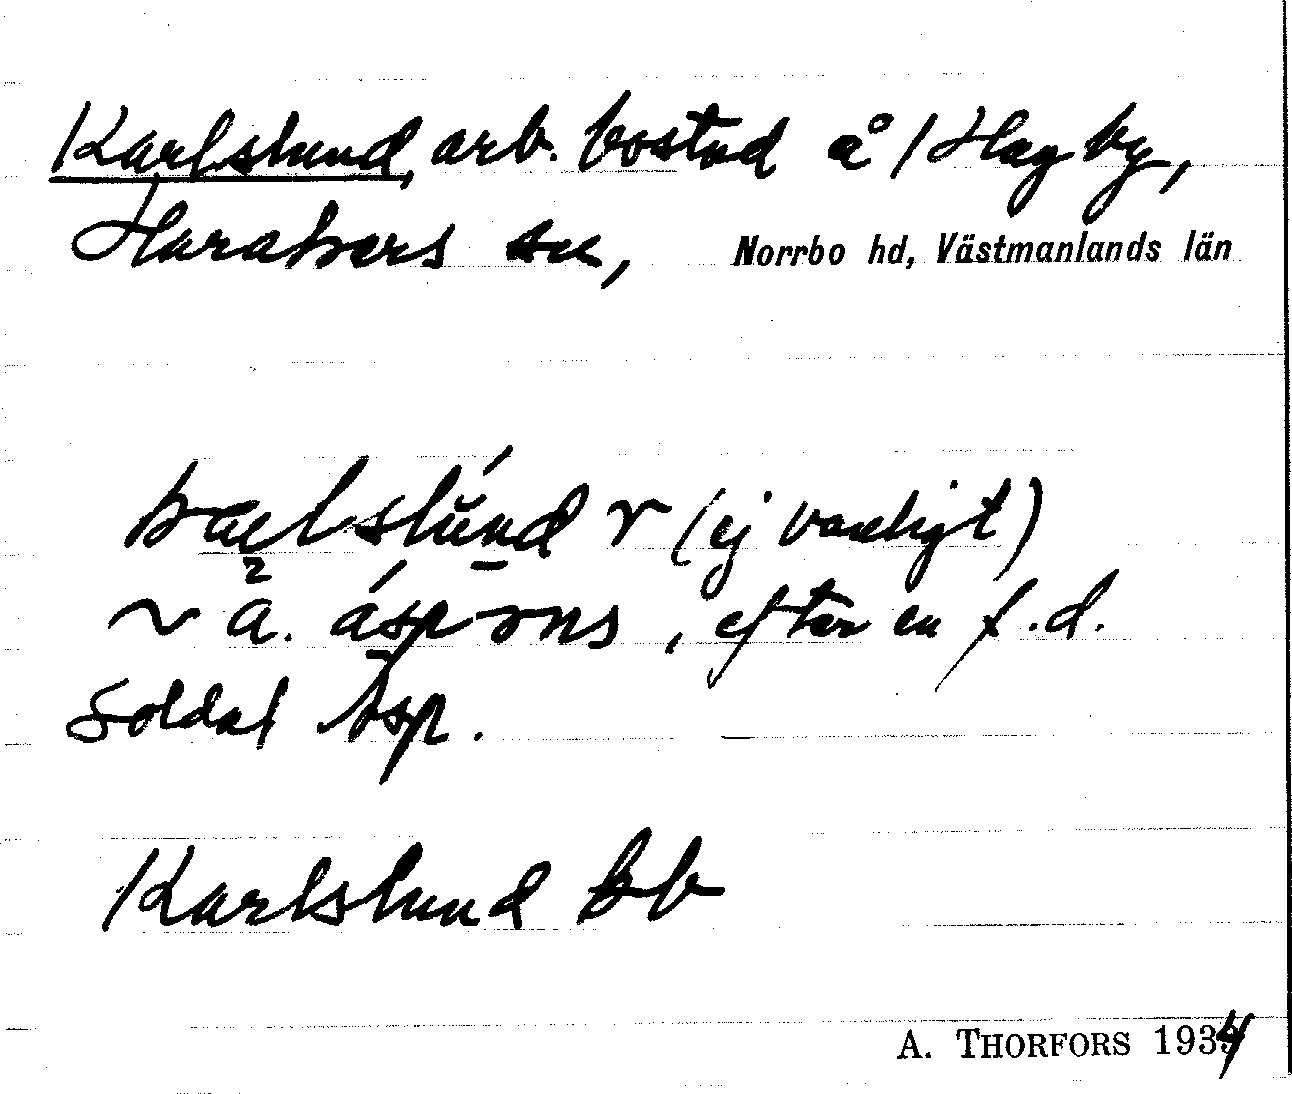 Karlslund, arb. bostad å Hagby,
Harakers sn, Norrbo hd, Västmanlands län
r (ej vanligt)
~ å. , efter en f.d.
soldat Asp.
Karlslund bb
A. THORFORS 1934